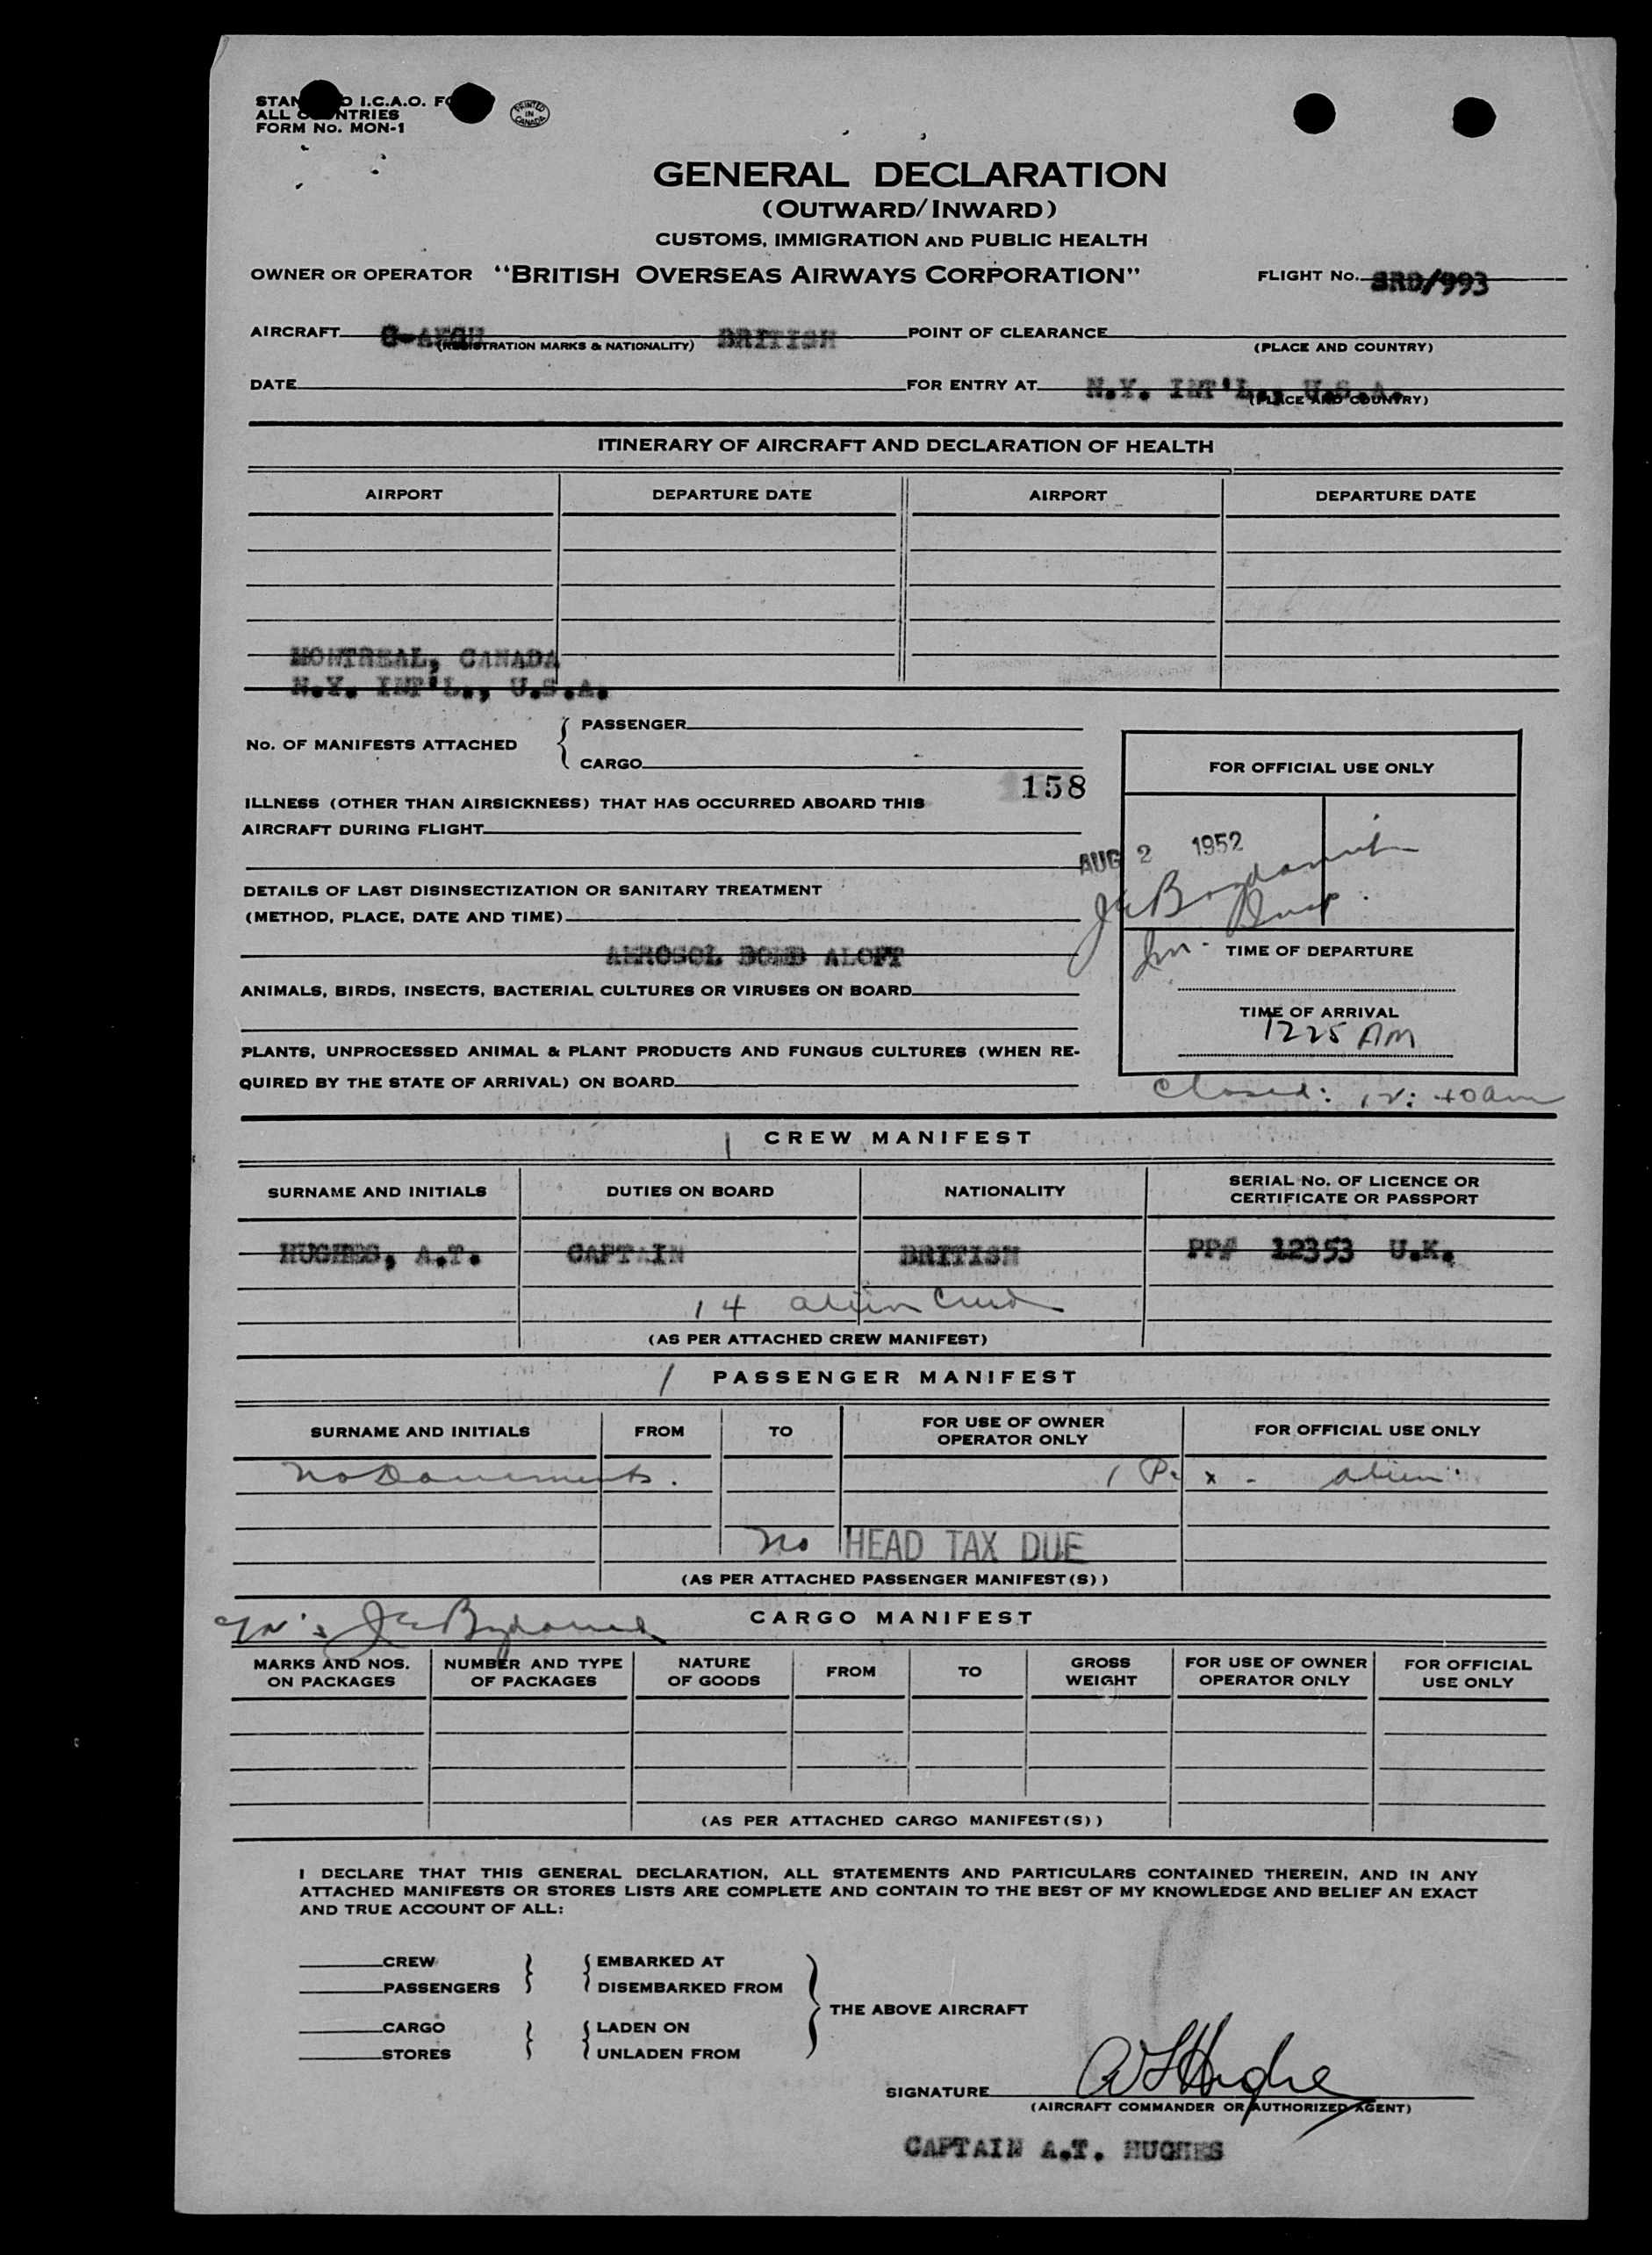 I.C.A.O.
ALL
FORM No. MON-1
PRINTED IN CANADA
GENERAL DECLARATION
(OUTWARD/INWARD)
CUSTOMS, IMMIGRATION AND PUBLIC HEALTH
OWNER OR OPERATOR "BRITISH OVERSEAS AIRWAYS CORPORATION" FLIGHT No. /993
AIRCRAFT BRITISH POINT OF CLEARANCE
(REGISTRATION MARKS & NATIONALITY) (PLACE AND COUNTRY)
DATE FOR ENTRY AT N.Y. INT'L., U.S.A.
(PLACE AND COUNTRY)
ITINERARY OF AIRCRAFT AND DECLARATION OF HEALTH
AIRPORT DEPARTURE DATE AIRPORT DEPARTURE DATE
MONTREAL, CANADA
N.Y. INT'L., U.S.A.
No. OF MANIFESTS ATTACHED { PASSENGER
CARGO
158
ILLNESS (OTHER THAN AIRSICKNESS) THAT HAS OCCURRED ABOARD THIS
AIRCRAFT DURING FLIGHT
DETAILS OF LAST DISINSECTIZATION OR SANITARY TREATMENT
(METHOD, PLACE, DATE AND TIME)
AEROSOL BOMB ALOFT
ANIMALS, BIRDS, INSECTS, BACTERIAL CULTURES OR VIRUSES ON BOARD
PLANTS, UNPROCESSED ANIMAL & PLANT PRODUCTS AND FUNGUS CULTURES (WHEN RE-
QUIRED BY THE STATE OF ARRIVAL) ON BOARD
FOR OFFICIAL USE ONLY
AUG 2 1952
TIME OF DEPARTURE
TIME OF ARRIVAL
1225 AM
Closed: 12:40am
CREW MANIFEST
SURNAME AND INITIALS DUTIES ON BOARD NATIONALITY SERIAL No. OF LICENCE OR
CERTIFICATE OR PASSPORT
HUGHES, A.T. CAPTAIN BRITISH PP# 12353 U.K.
14 alien Crew
(AS PER ATTACHED CREW MANIFEST)
1 PASSENGER MANIFEST
SURNAME AND INITIALS FROM TO FOR USE OF OWNER
OPERATOR ONLY FOR OFFICIAL USE ONLY
1 Pax - alien
No HEAD TAX DUE
(AS PER ATTACHED PASSENGER MANIFEST(S))
CARGO MANIFEST
MARKS AND NOS.
ON PACKAGES NUMBER AND TYPE
OF PACKAGES NATURE
OF GOODS FROM TO GROSS
WEIGHT FOR USE OF OWNER
OPERATOR ONLY FOR OFFICIAL
USE ONLY
(AS PER ATTACHED CARGO MANIFEST(S))
I DECLARE THAT THIS GENERAL DECLARATION, ALL STATEMENTS AND PARTICULARS CONTAINED THEREIN, AND IN ANY
ATTACHED MANIFESTS OR STORES LISTS ARE COMPLETE AND CONTAIN TO THE BEST OF MY KNOWLEDGE AND BELIEF AN EXACT
AND TRUE ACCOUNT OF ALL:
CREW EMBARKED AT
PASSENGERS DISEMBARKED FROM
THE ABOVE AIRCRAFT
CARGO LADEN ON
STORES UNLADEN FROM
SIGNATURE
(AIRCRAFT COMMANDER OR AUTHORIZED AGENT)
CAPTAIN A.T. HUGHES